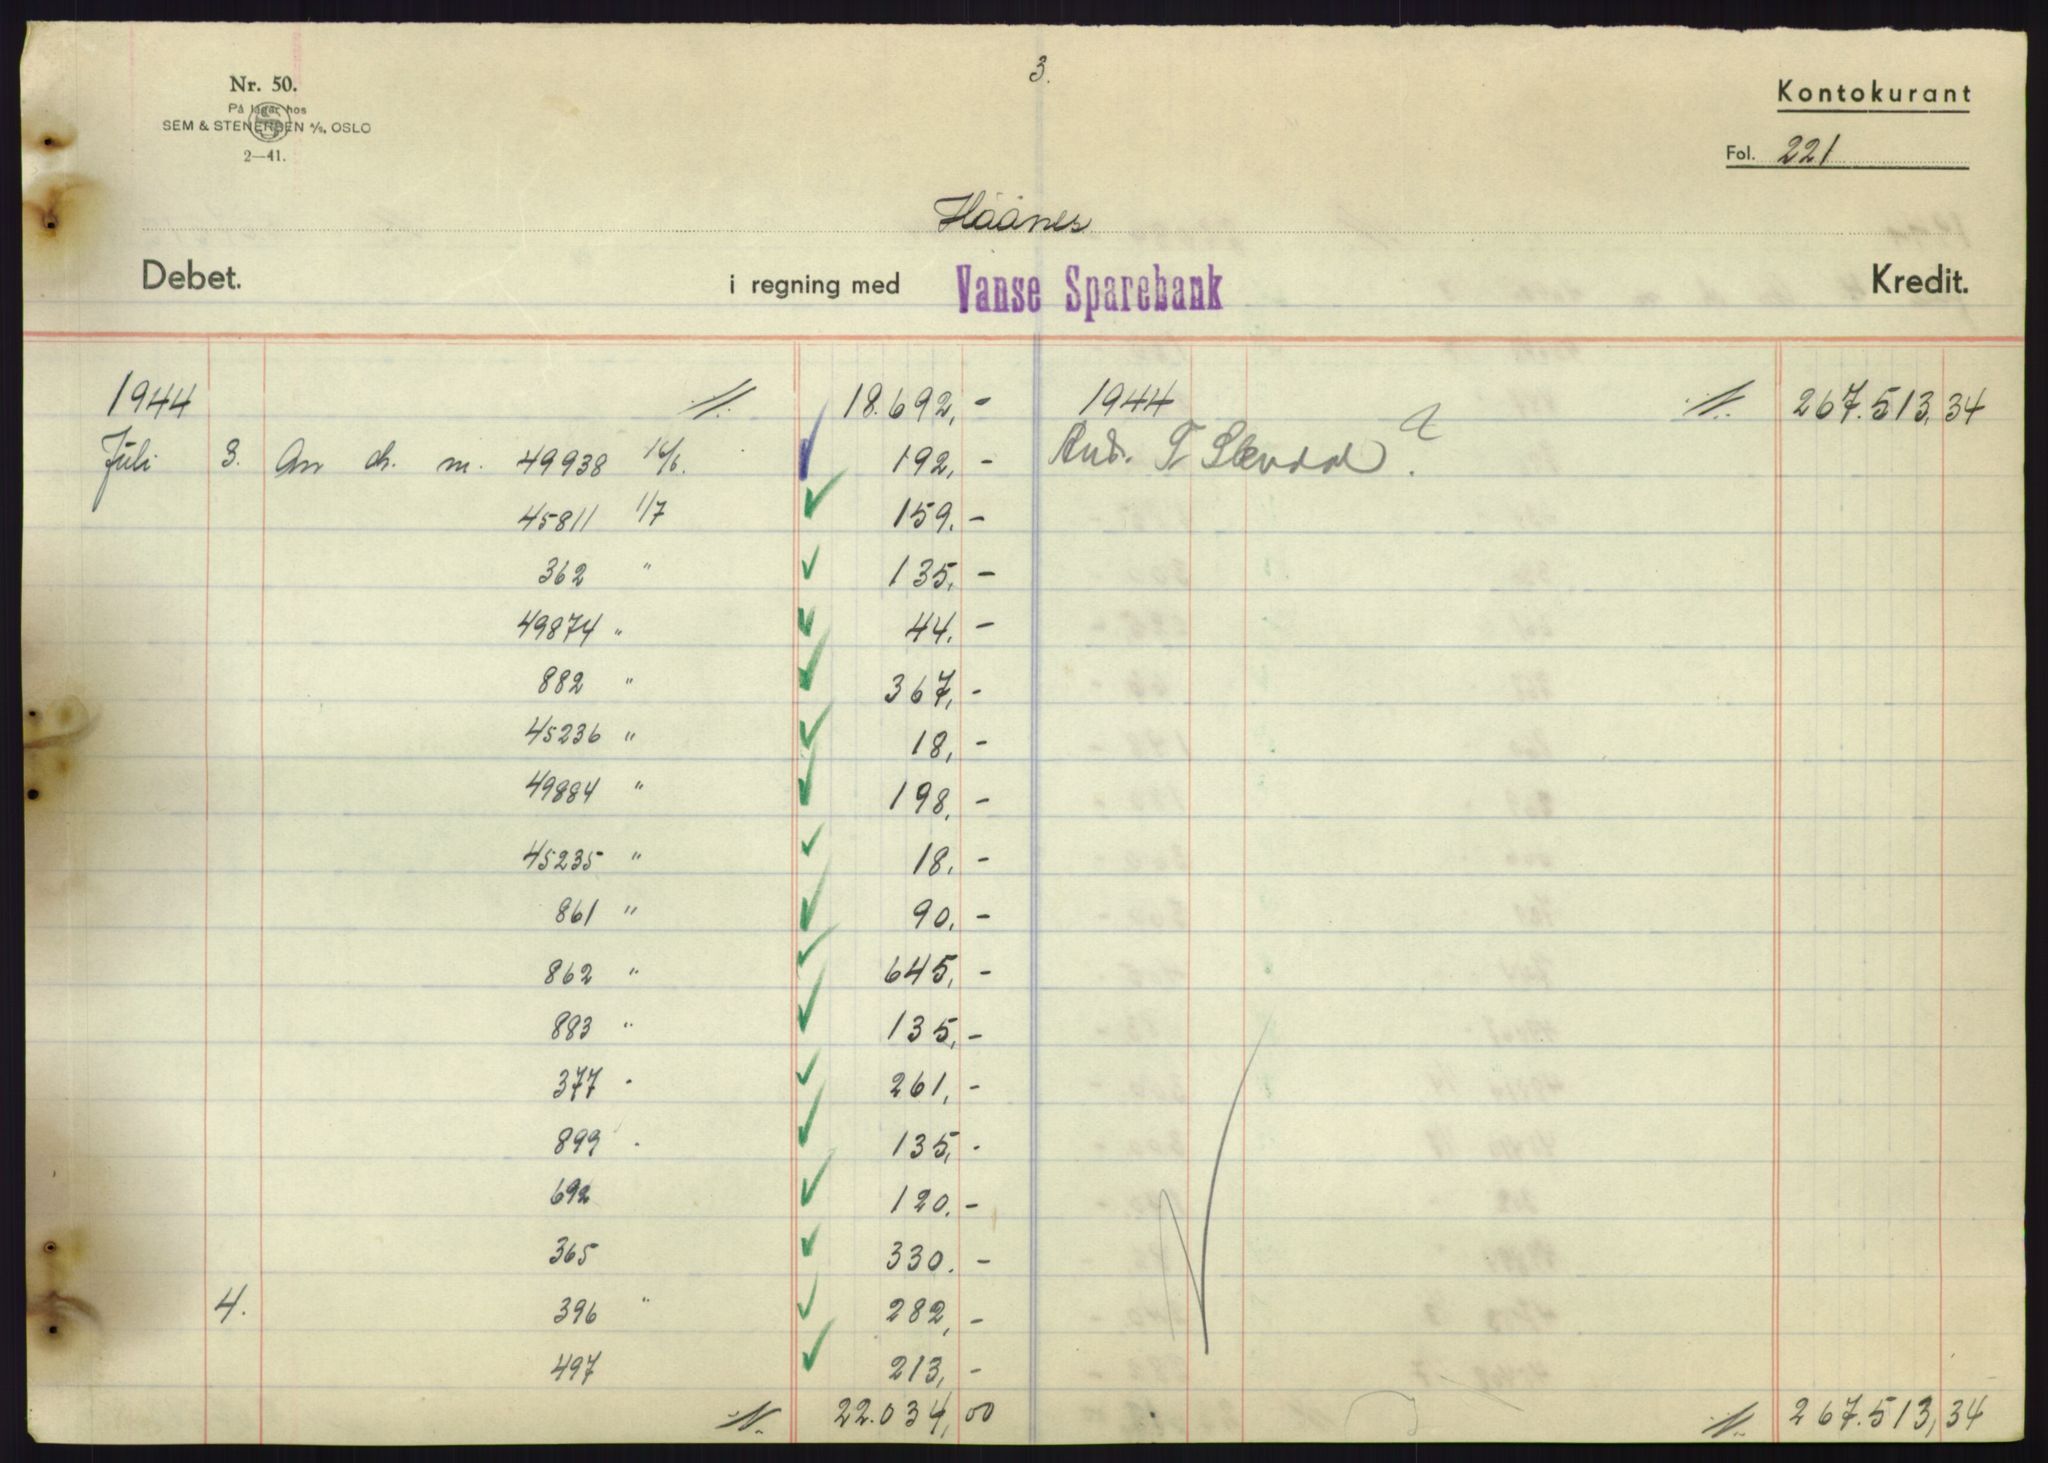 3.
Nr. 50.
På lager hos
SEM & STENERSEN A/S, OSLO
2—41.
Kontokurant
Fol. 221
Håånes
Debet. i regning med Vanse Sparebank Kredit.
1944 18.692,- 1944 267.513,34
Juli 3. An ch. m. 49938 16/6. 192,-
45811 1/7 159.-
362 " 135,-
49874 " 44.-
882 " 367,-
45236 " 18,-
49884 " 198,-
45235 " 18.-
861 " 90.-
862 " 645,-
883 " 135,-
377 " 261,-
899 " 135,-
692 120.-
365 330.-
4. 396 " 282,-
497 213,-
22.034,00 267.513,34